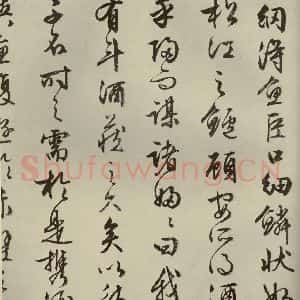 網得魚巨口細鱗狀如
松江之鱸顧安所得酒
乎歸而謀諸婦々曰我
有斗酒藏之久矣以待
子不時之需於是攜酒
魚復遊於赤壁
Shufawang.CN